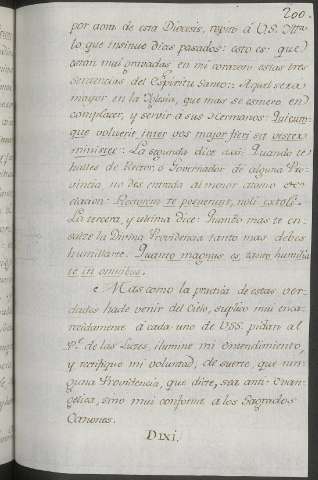 200.
por aora de esta Diocesis, repito á V.S. Ill.ma
lo que insinué dias pasados: esto es que
están mui gravadas en mi corazon estas tres
sentencias del Espiritu Santo: Aquel será
mayor en la Iglesia, que mas se esmere en
complacer, y servir a sus Hermanos: Quicum-
que voluerit inter vos major fieri sit vester
minister: La segunda dice assi: Quando te
halles de Rector, ó Governador de alguna Pro-
vincia no des entrada al menor atomo de
elacion: Rectorem te posuerunt, noli extolli.
La tercera, y ultima dice: Quanto mas te en-
salze la Divina Providencia tanto mas debes
humillarte: Quanto magnus es, tanto humilia
te in omnibus.
Mas como la practica de estas ver-
dades hade venir del Cielo, suplico mui enca-
recidamente á cada uno de VSS. pidan al
P.e de las Luzes, ilumine mi entendimiento,
y rectifique mi voluntad, de suerte, que nin-
guna Providencia, que dicte, sea anti-Evan-
gelica, sino mui conforme a los Sagrados
Canones.
Dixi.